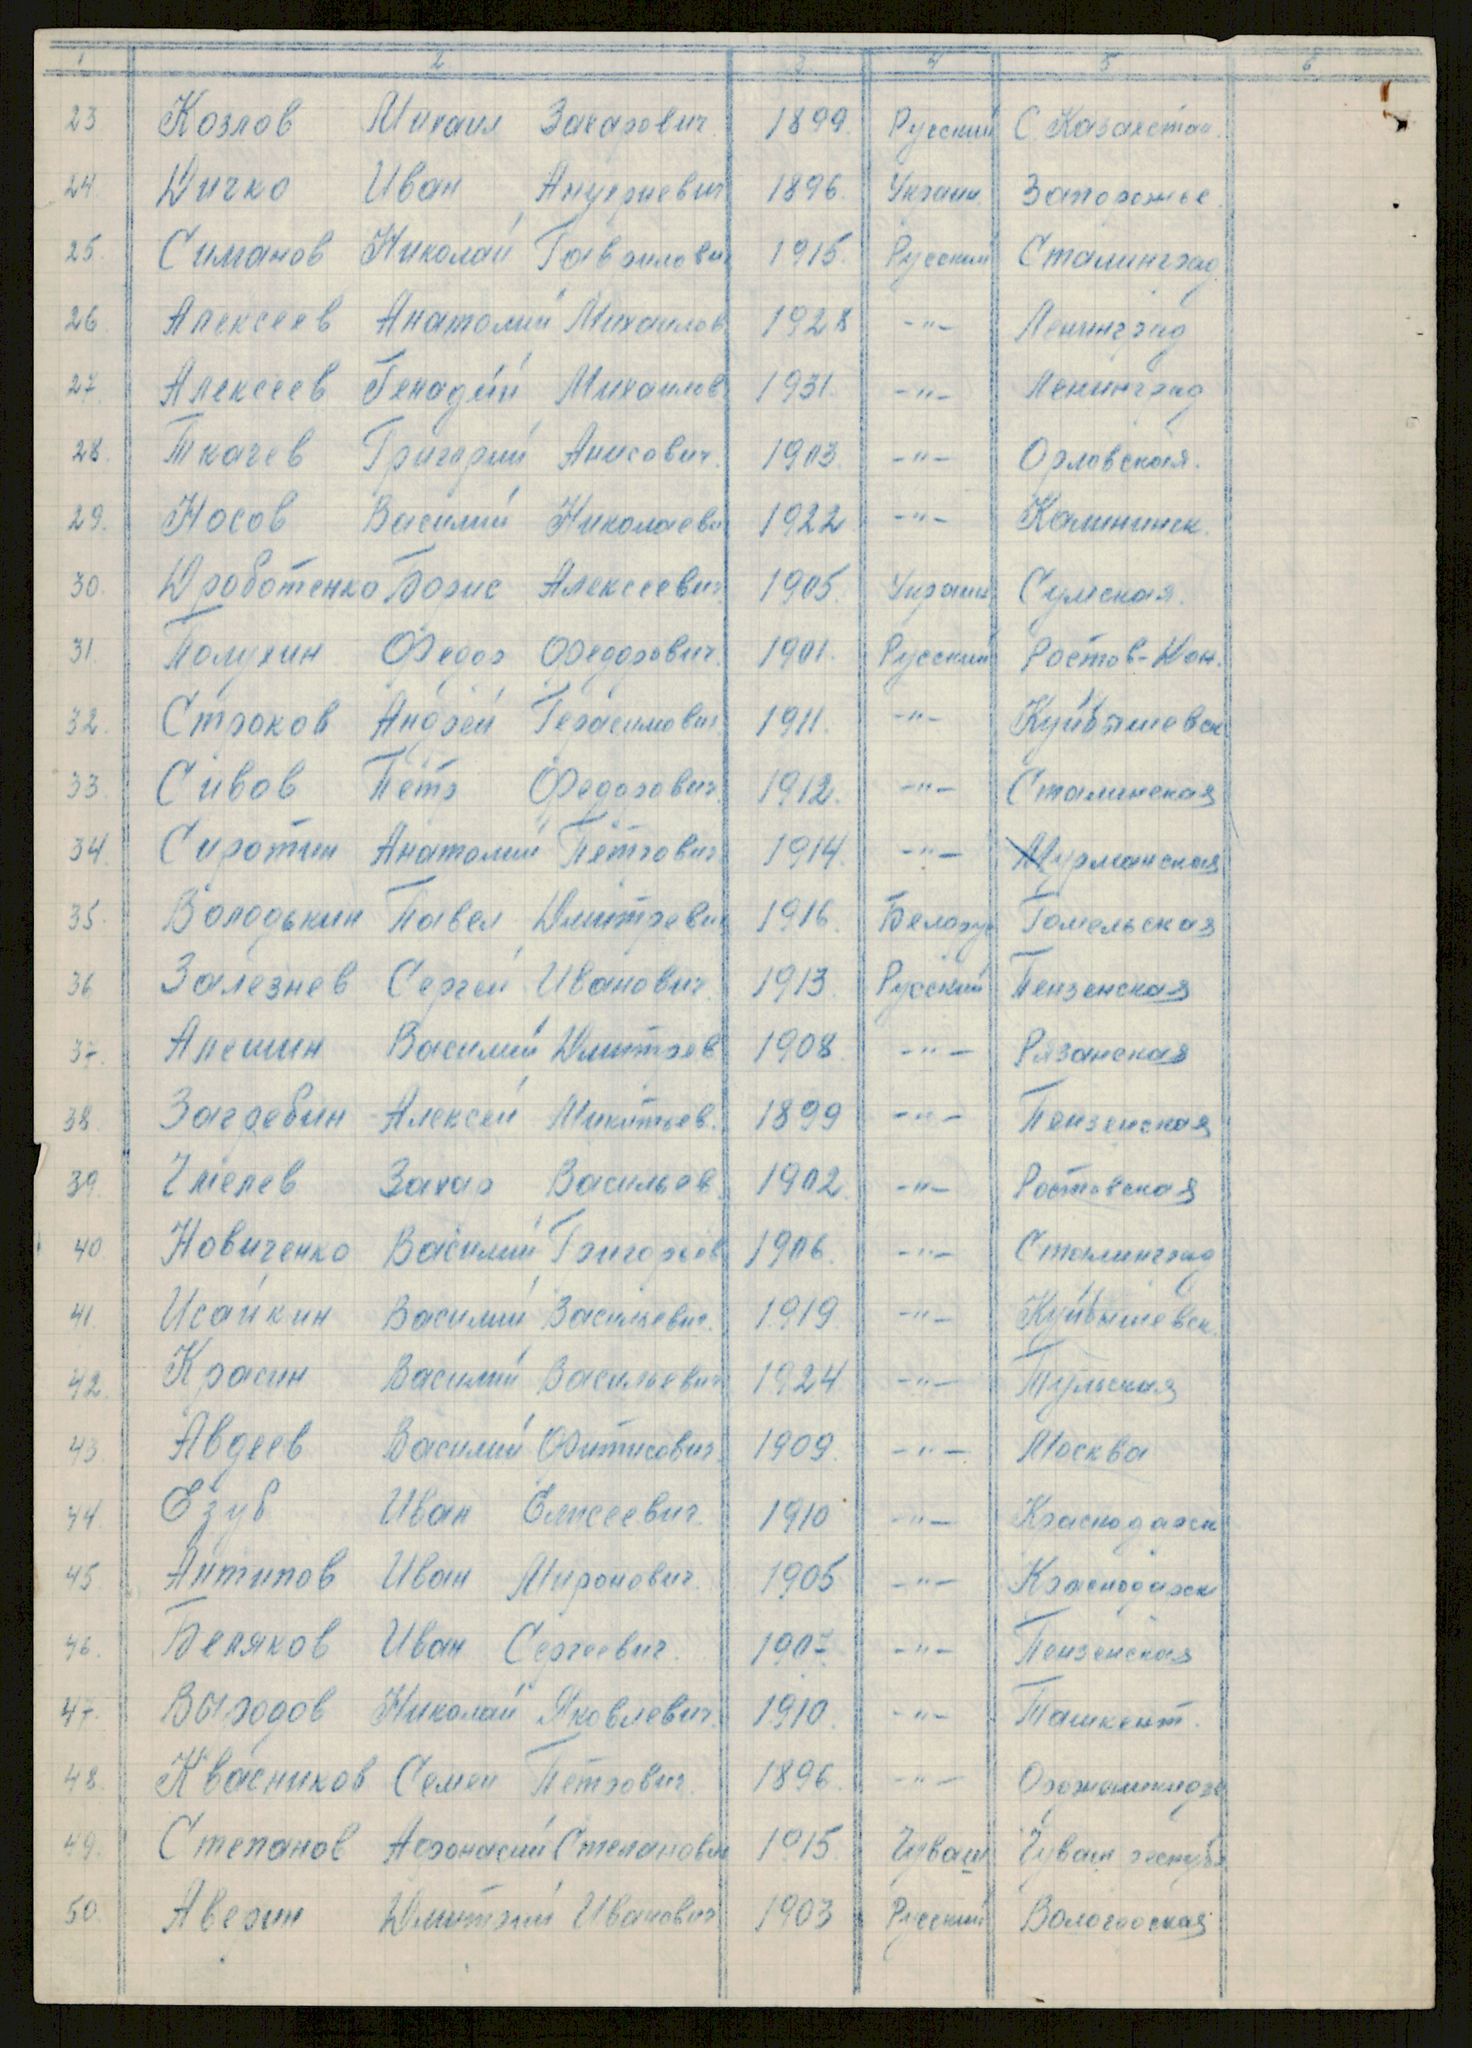 1 2 3 4 5 6
23. Козлов Михаил Захарович. 1899. Русский С. Казахстан.
24. Дичко Иван 1896. Украин. Запорожье.
25. Симанов Николай Гаврилови 1915. Русский Сталинград
26. Алексеев Анатолий Михаилов 1928 -"- Ленинград
27. Алексеев Генадий Михаилов 1931. -"- Ленинград
28. Ткачев Григорий Анисович. 1903. -"- Орловская.
29. Носов Василий Николаеви 1922 -"- Калининск.
30. Дроботенко Борис Алексеевич 1905. Украин Сумская.
31. Полухин Федор Федорович. 1901. Русский Ростов-Дон.
32. Строков Андрей Герасимович 1911. -"- Куйбышевск
33. Сивов Пётр Федорович. 1912. -"- Сталинская
34. Сиротин Анатолий Пётрович 1914. -"- Мурманская
35. Володькин Павел Дмитреви 1916. Белорус Гомельская
36. Залезнев Сергей Иванович. 1913. Русский Пензенская
37. Алешин Василий Дмитрев 1908. -"- Рязанская
38. Загребин Алексей Микитьев. 1899 -"- Пензенская
39. Чмелев Захар Васильев 1902. -"- Ростовская
40. Новиченко Василий Григорьев 1906. -"- Сталинград
41. Исайкин Василий Васильевич. 1919. -"- Куйбышевск.
42. Красин Василий Васильевич 1924 -"- Тульская
43. Авдеев Василий Фитисович. 1909. -"- Москва
44. Езуб Иван Елисеевич. 1910 -"- Краснодарск
45. Антипов Иван Миронович. 1905 -"- Краснодарск
46. Беляков Иван Сергеевич. 1907. -"- Пензенская
47. Выродов Николай Яковлевич. 1910. -"- Ташкент.
48. Квасников Семен Пётрович. 1896. -"- Орджоникидзе
49. Степанов Афонасий Степанови 1915. Чуваш Чуваш республ
50. Аверин Дмитрий Иванович 1903 Русский Вологодская